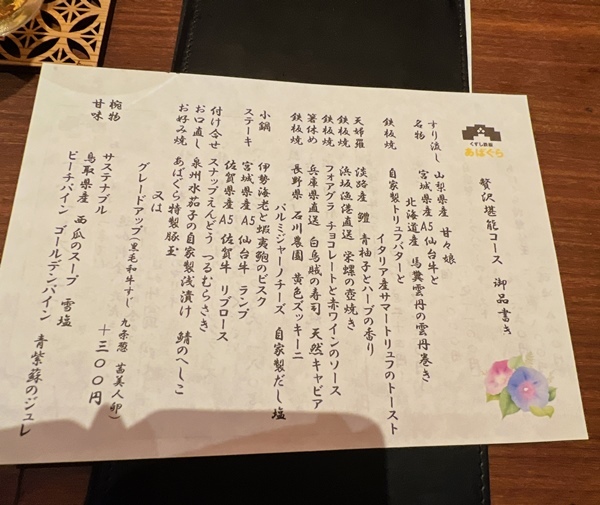 くずし鉄板
あばぐら
贅沢堪能コース 御品書き
すり流し 山梨県産 甘々娘
名物 宮城県産A5仙台牛と
北海道産 馬糞雲丹の雲丹巻き
鉄板焼 自家製トリュフバターと
イタリア産サマートリュフのトースト
天婦羅 淡路産 鱧 青柚子とハーブの香り
鉄板焼 浜坂漁港直送 栄螺の壺焼き
鉄板焼 フォアグラ チョコレートと赤ワインのソース
箸休め 兵庫県直送 白烏賊の寿司 天然キャビア
鉄板焼 長野県 石川農園 黄色ズッキーニ
パルミジャーノチーズ 自家製だし塩
小鍋 伊勢海老と蝦夷鮑のビスク
ステーキ 宮城県産A5 仙台牛 ランプ
佐賀県産A5 佐賀牛 リブロース
付け合せ スナップえんどう つるむらさき
お口直し 泉州水茄子の自家製浅漬け 鯖のへしこ
お好み焼 あばぐら特製豚玉
又は
グレードアップ(黒毛和牛すじ 九条葱 茜美人卵)
+三〇〇円
椀物 サステナブル
甘味 鳥取県産 西瓜のスープ 雪塩
ピーチパイン ゴールデンパイン 青紫蘇のジュレ